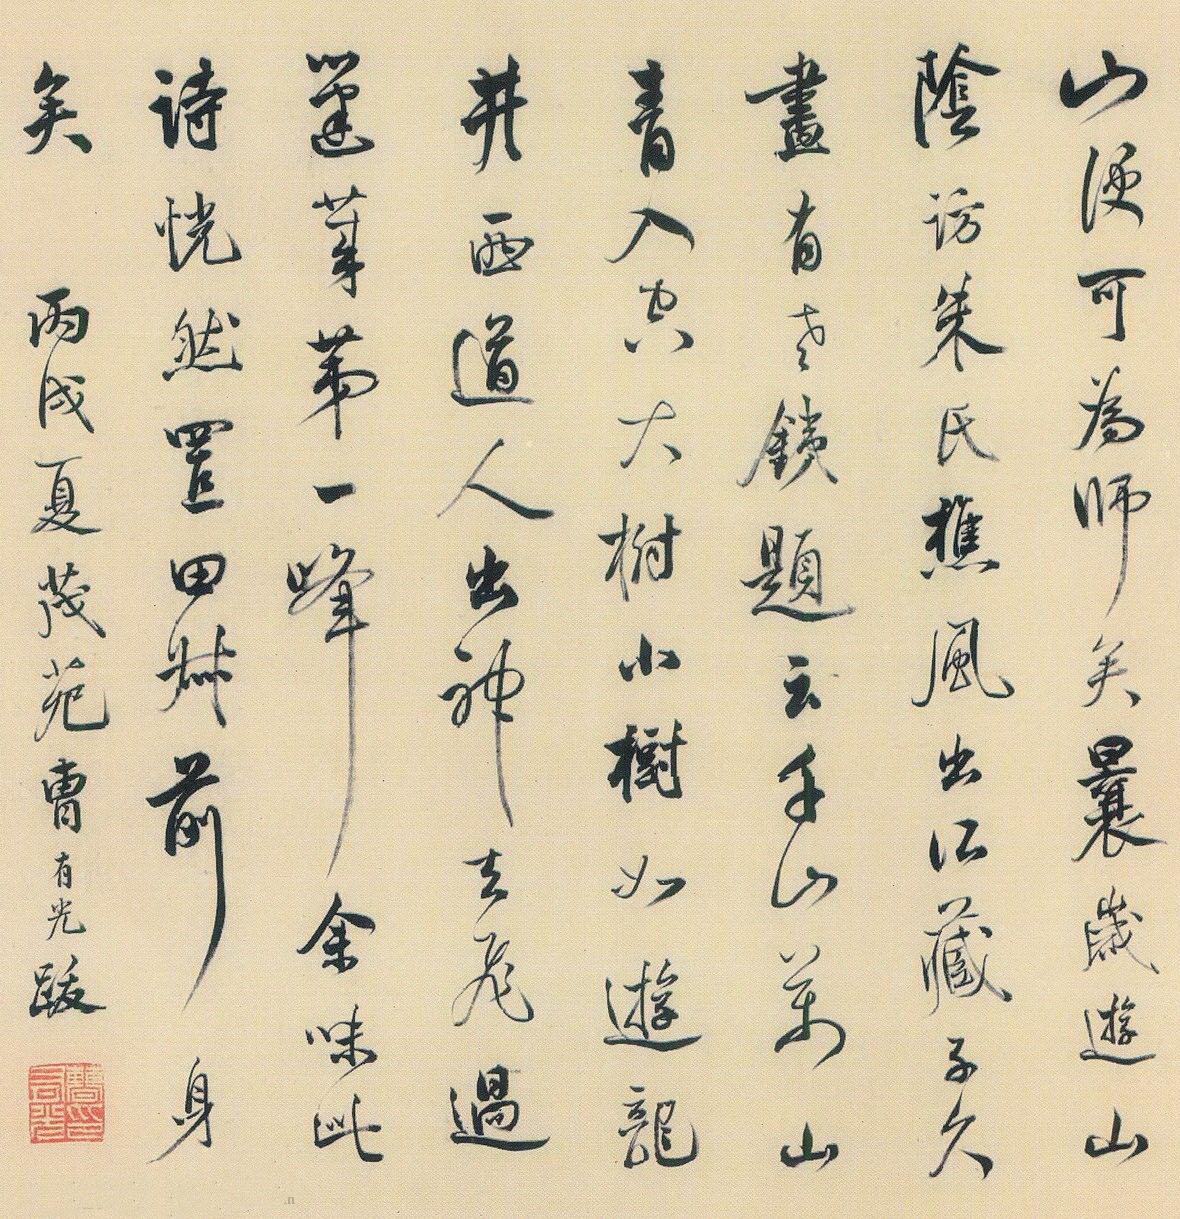 山便可為師矣曩歲遊山
陰訪朱氏樵風出江藏子久
畫有老鐵題云千山萬山
青入空大樹小樹如遊龍
井西道人出神去飛過
蓬莱第一峰余味此
詩恍然置田叔前身
矣 丙戌夏茂苑曹有光跋
曹有光印